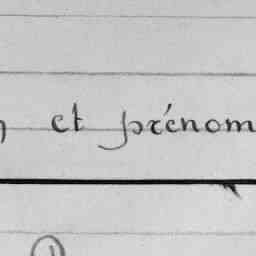 et prénom